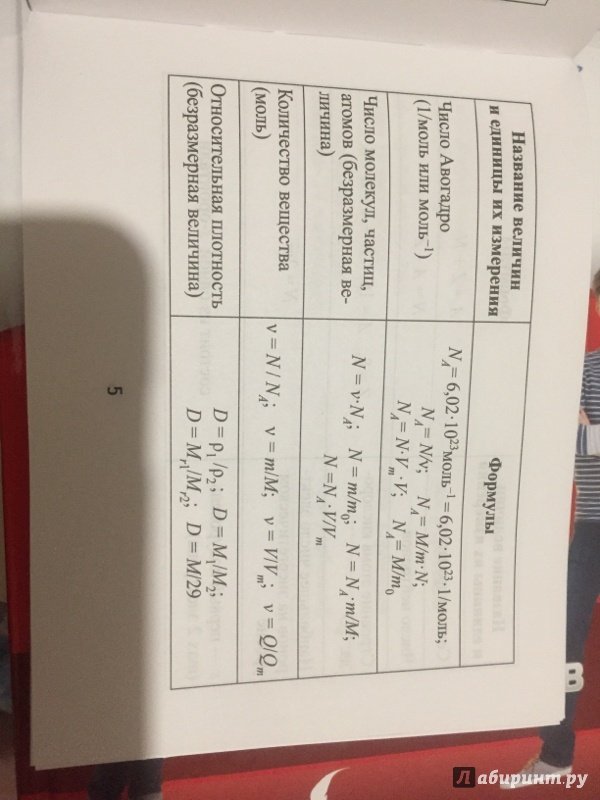 Название величин
и единицы их измерения
Формулы
Число Авогадро
(1/моль или моль⁻¹)
N_A = 6,02·10²³моль⁻¹ = 6,02·10²³·1/моль;
N_A = N/ν; N_A = M/m·N;
N_A = N·V_m·V; N_A = M/m₀
Число молекул, частиц,
атомов (безразмерная ве-
личина)
N = ν·N_A; N = m/m₀; N = N_A·m/M;
N = N_A·V/V_m
Количество вещества
(моль)
ν = N / N_A; ν = m/M; ν = V/V_m; ν = Q/Q_m
Относительная плотность
(безразмерная величина)
D = ρ₁/ρ₂; D = M₁/M₂;
D = M_r1/M_r2; D = M/29
5
В
Лабиринт.ру